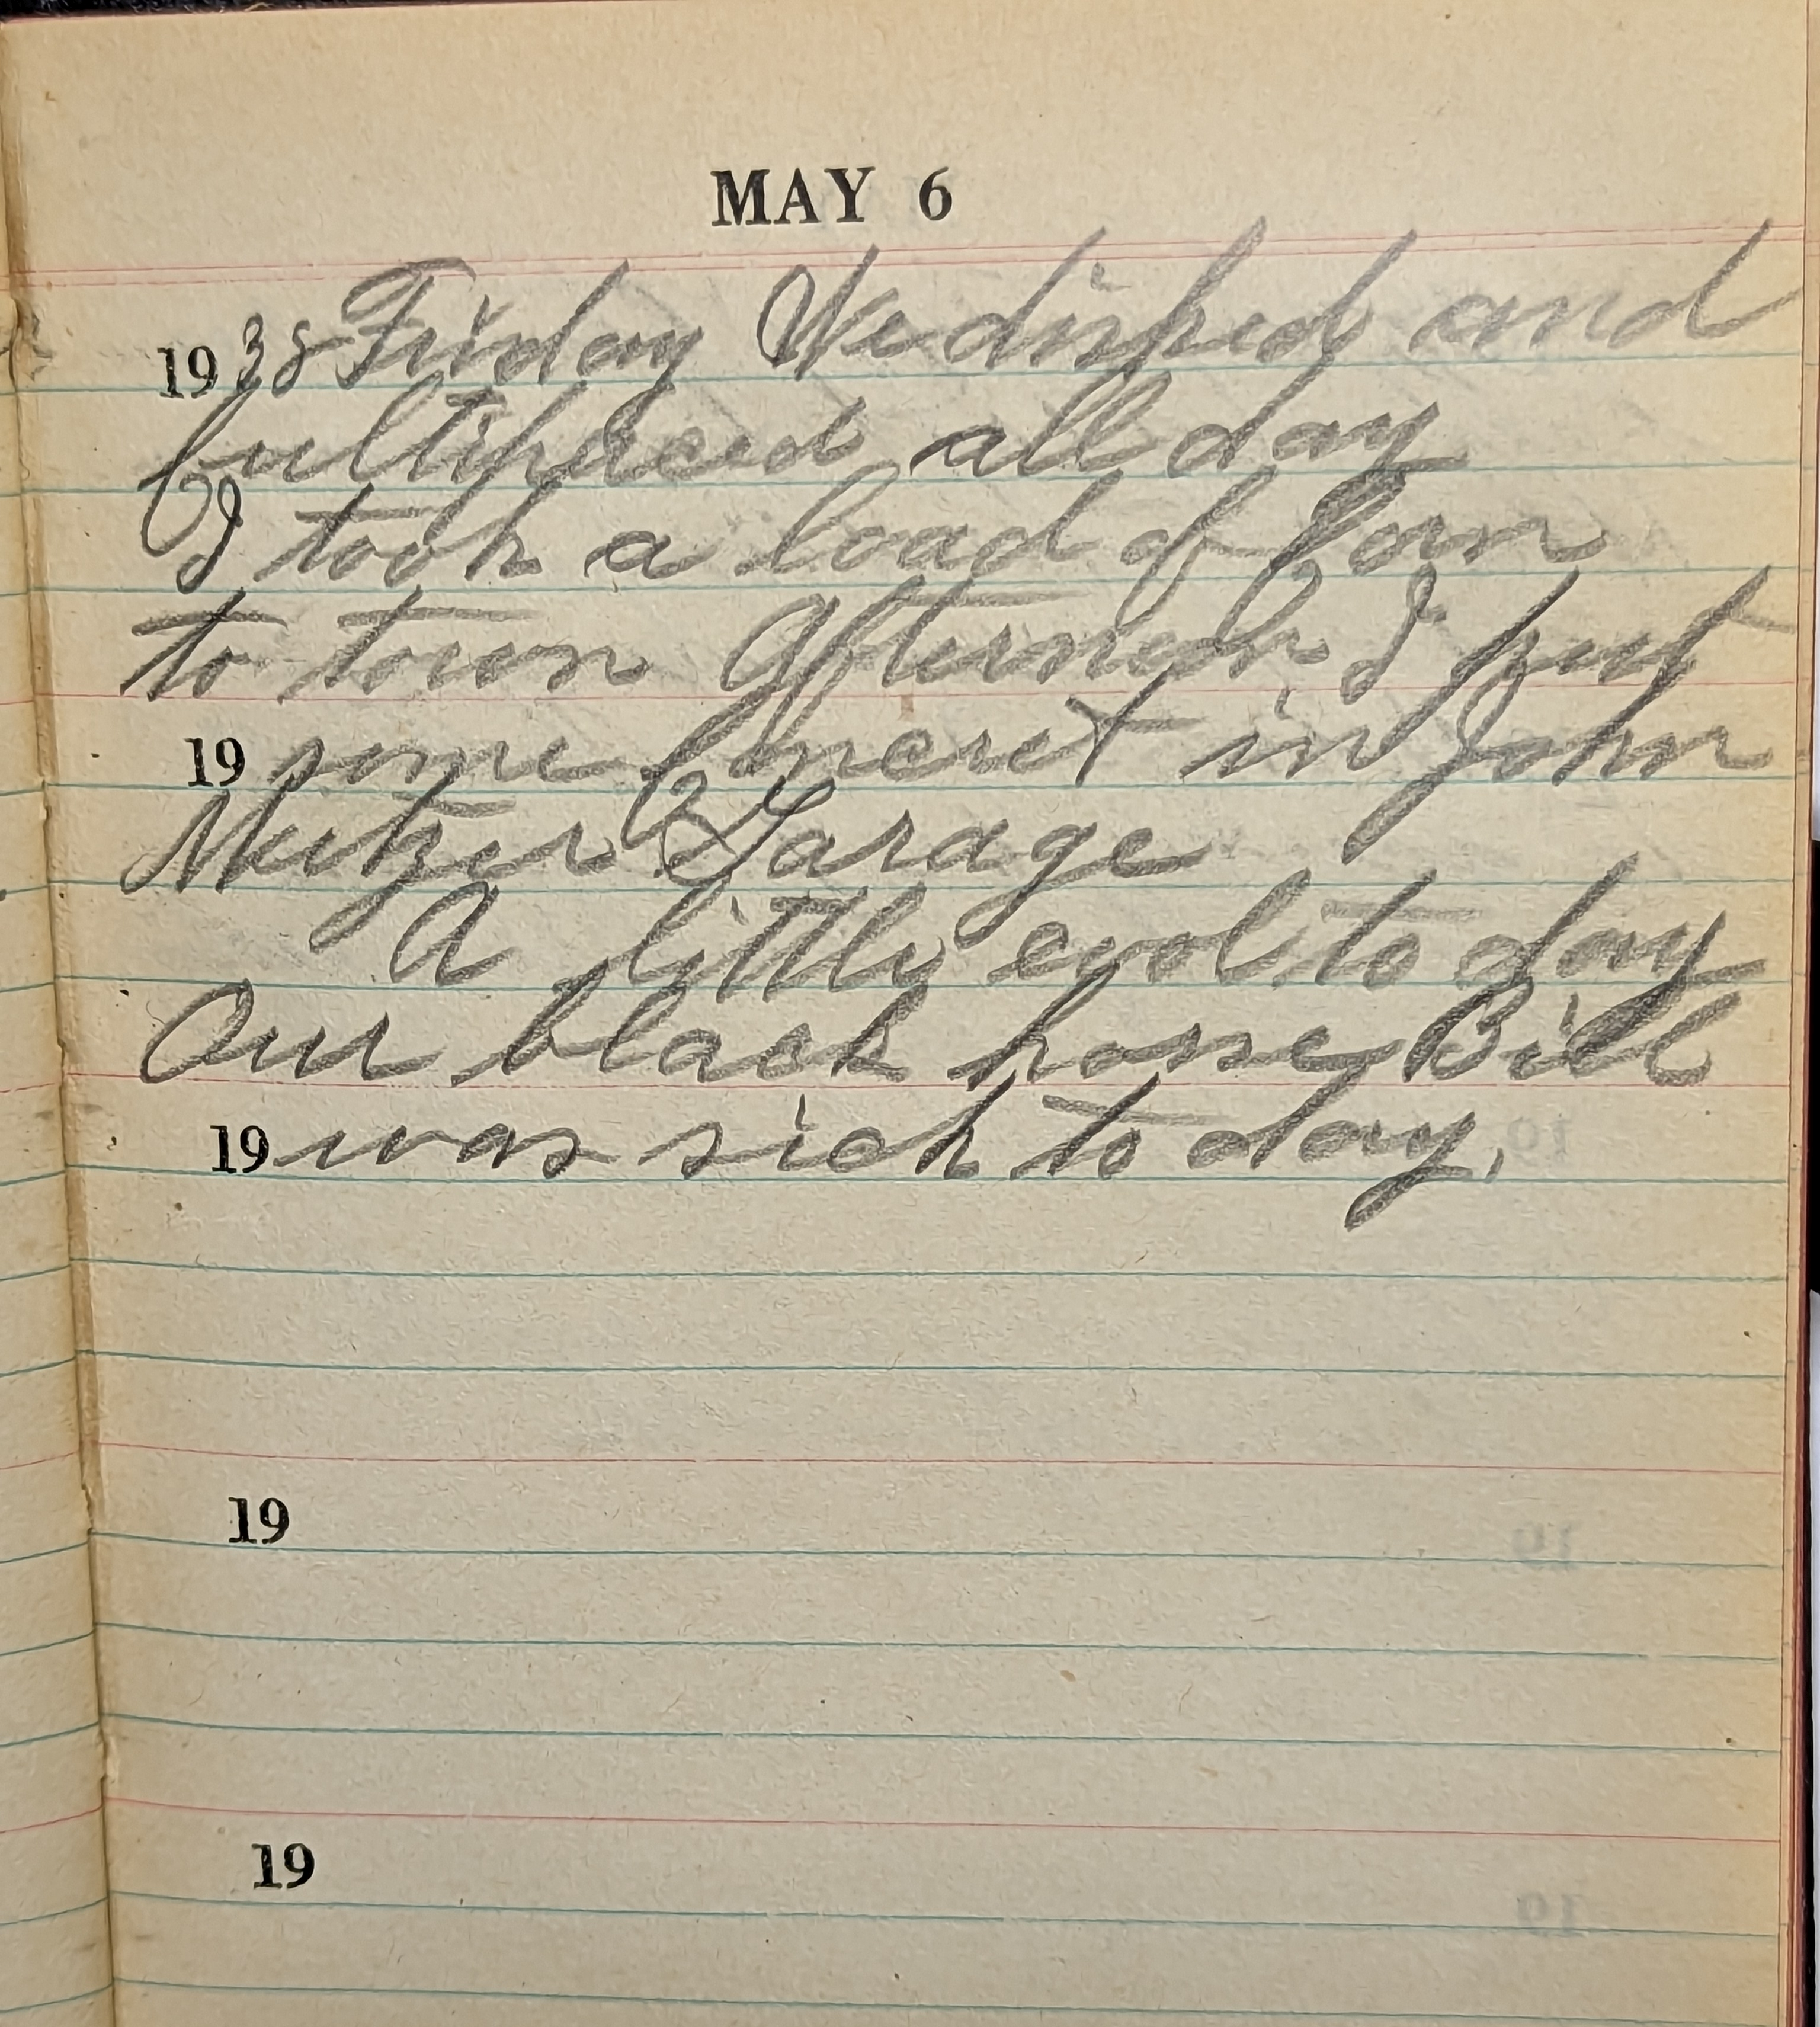 MAY 6
1938 Friday We disked and
cultipaced all day
I took a load of Corn
to town Afternoon I put
19 some in John
Mutzer Garage
A little cool to day
Our black horse Bill
19 was sick to day.
19
19